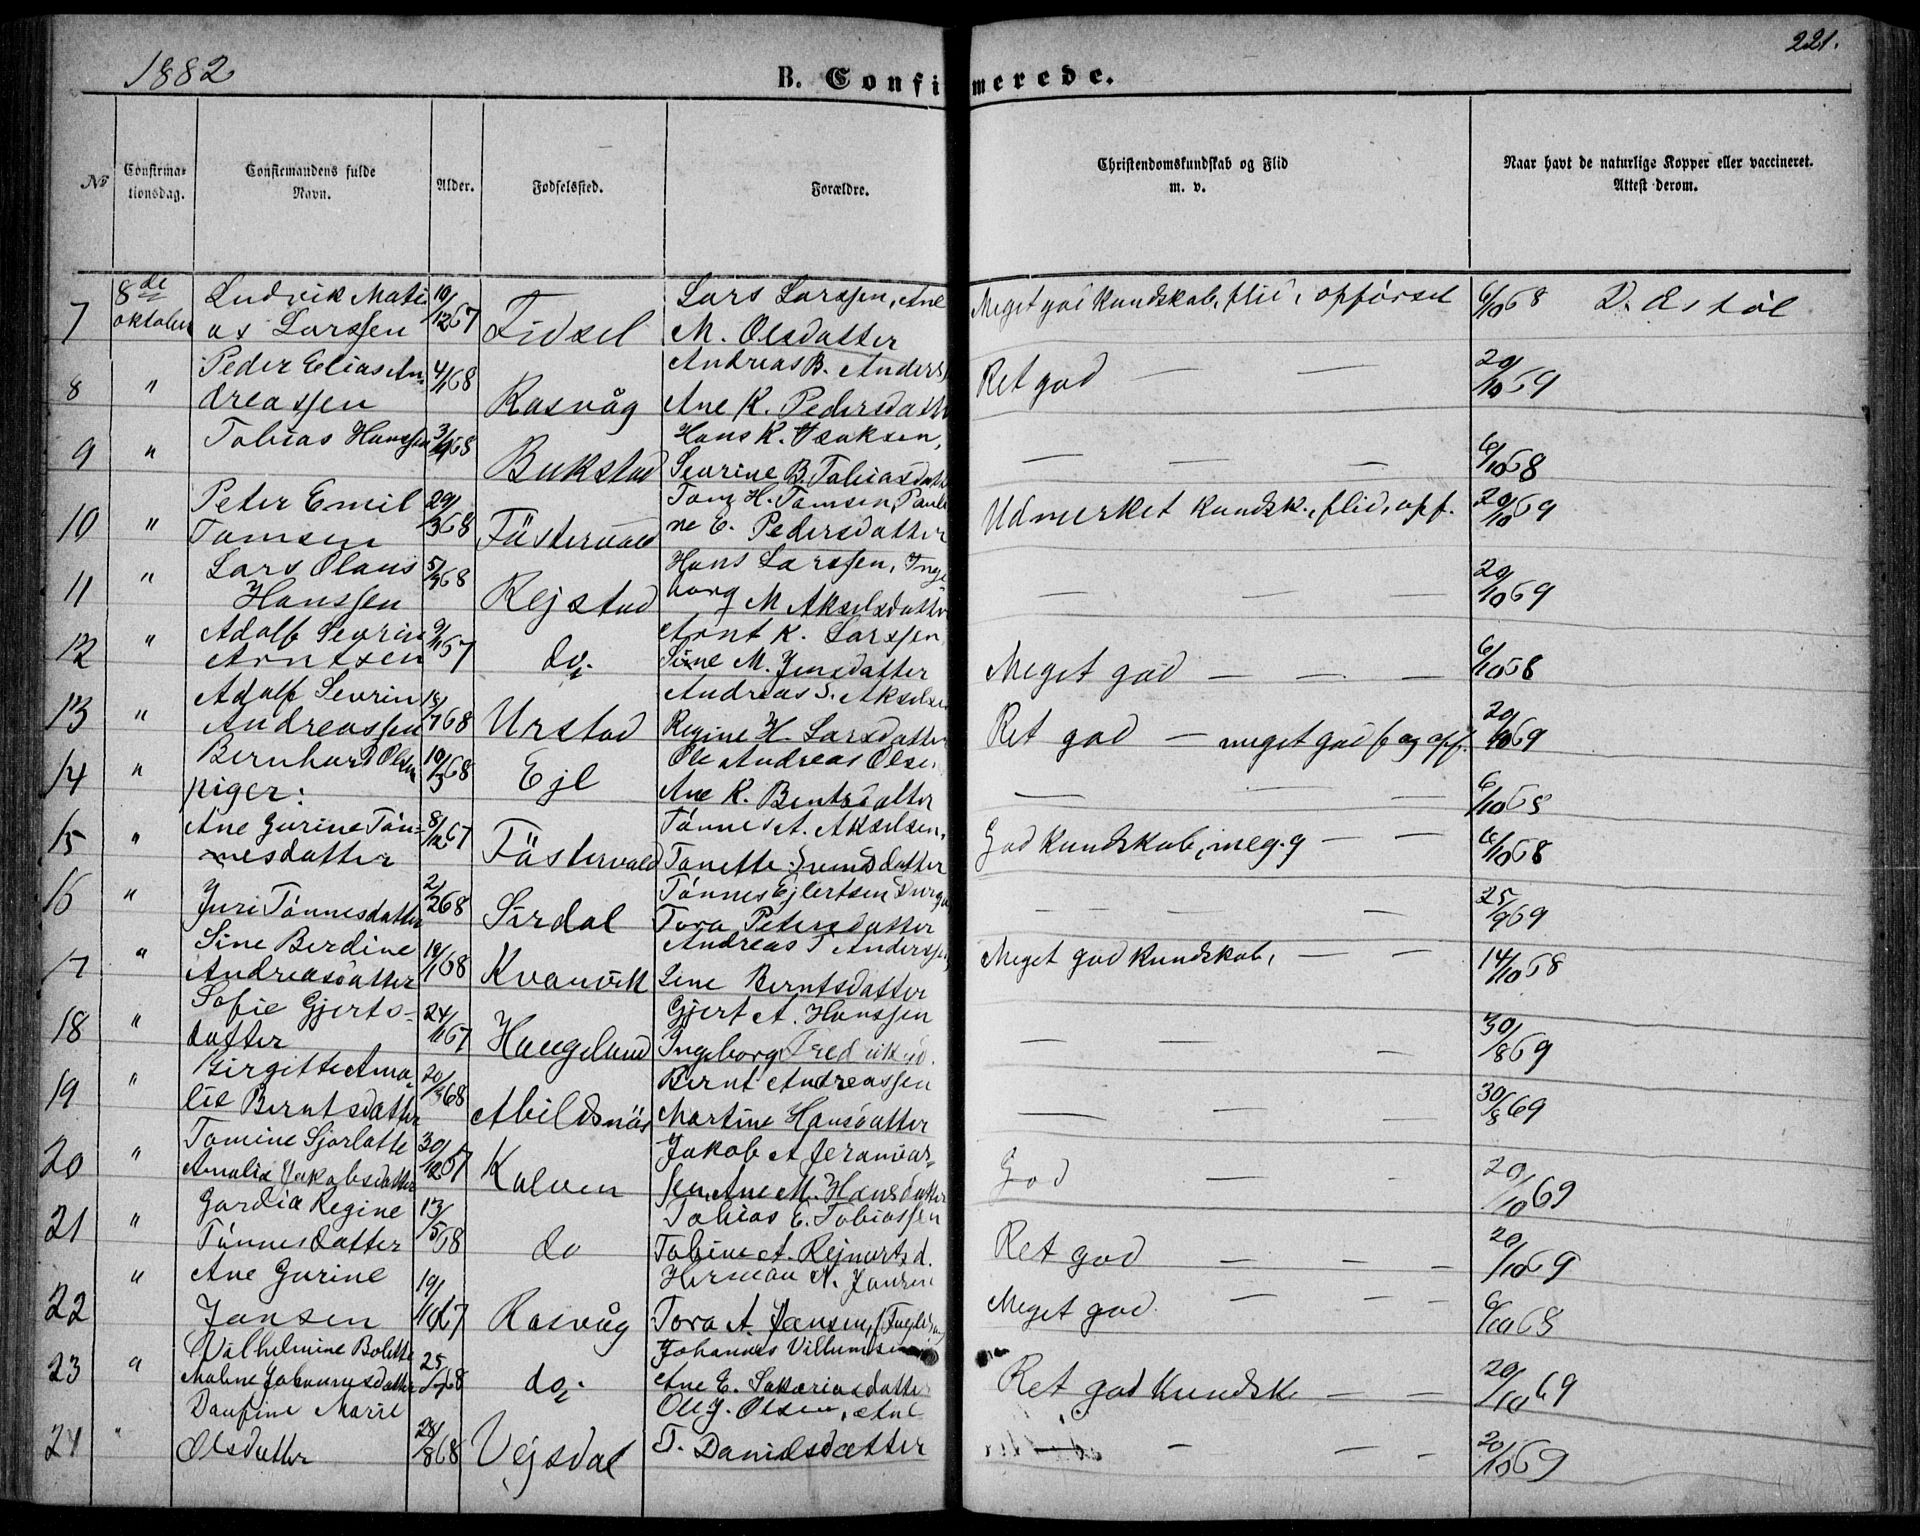 1882
B. Confirmerede.
221.
No
Confirma-
tionsdag.
Confirmandens fulde
Navn.
Alder.
Fødselssted.
Forældre.
Christendomskundskab og Flid
m. v.
Naar havt de naturlige Kopper eller vaccineret.
Attest derom.
7 8de oktober Ludvik Mati
as Larssen 10/12 67 Fidsel Lars Larssen, Ane
M. Olsdatter Meget god Kundskab, flid, opførsel 6/10 68
8 " Peder Elias An-
dreassen 4/1 68 Rasvåg Andreas B. Anders
Ane K. Pedersdatt Ret god — — 20/10 69
9 " Tobias Hanssen 3/4 68 Bukstad Hans K. Isaksen,
Sevrine B. Tobiasdatt — — — 6/10 68
10 " Peter Emil
Tomsen 29/3 68 Fästervold Tonz H. Tomsen, Pauli
ne E. Pedersdatter Udmerket kundsk., flid, opf. 20/10 69
11 " Lars Olaus
Hanssen 5/3 68 Rejstad Hans Larssen, Inge
borg M. Akselsdatter — — — 20/10 69
12 " Adolf Sevrin
Arntsen 9/11 67 do. Arnt K. Larssen,
Sine M. Jensdatter Meget god — — — 6/10 68
13 " Adolf Sevrin
Andreassen 18/7 68 Urstad Andreas S. Akselse
Regine H. Larsdatter Ret god — meget god f og opf. 20/10 69
14 " Bernhard Olsen 10/3 68 Ejl Ole Andreas Olse
Ane K. Berntsdatter — — — 6/10 68
piger:
15 " Ane Gurine Tön-
nesdatter 8/12 67 Fästervold Tönnes A. Akselsen,
Tonette Svensdatter God kundskab, meg. g — — 6/10 68
16 " Juri Tönnesdatter 2/2 68 Sirdal Tönnes Ejlertsen
Tora Petersdatter — — — — 25/9 69
17 " Sine Berdine
Andreasdatter 19/1 68 Kvanvik Andreas T Anderssen
Lene Berntsdatter Meget god kundskab, — — 14/10 68
18 " Sofie Gjerts-
datter 24/11 67 Haugeland Gjert A. Hanssen
Ingeborg Fredriksd. — — — 30/8 69
19 " Birgitte Ama-
lie Berntsdatter 20/ 68 Abildsnäs Bernt Andreassen
Martine Hansdatter — — — 30/8 69
20 " Tomine Sjorlotte
Amalia Jakobsdatter 30/12 67 Kalven Jakob A Jeranias-
sen, Ane M. Hansdatter God — — 20/10 69
21 " Gardia Regine
Tönnesdatter 13/5 68 do Tobias E. Tobiassen
Tobine A. Rejnertsd. Ret god — — — 20/10 69
22 " Ane Gurine
Jansen 19/10 67 Rasvåg Herman N. Jansen
Tora A. Jansen, Meget god. — — — 6/10 68
23 " Vilhelmine Bolette
Malene Johannesdatter 25/7 68 do. Johannes Villumsen
Ane E. Sakariasdatter Ret god kundsk — — 20/10 69
24 " Daufine Marie
Olsdatter 28/8 68 Vejsdal Ole J. Olsen, Ane
T. Danielsdatter — — — 20/10 69